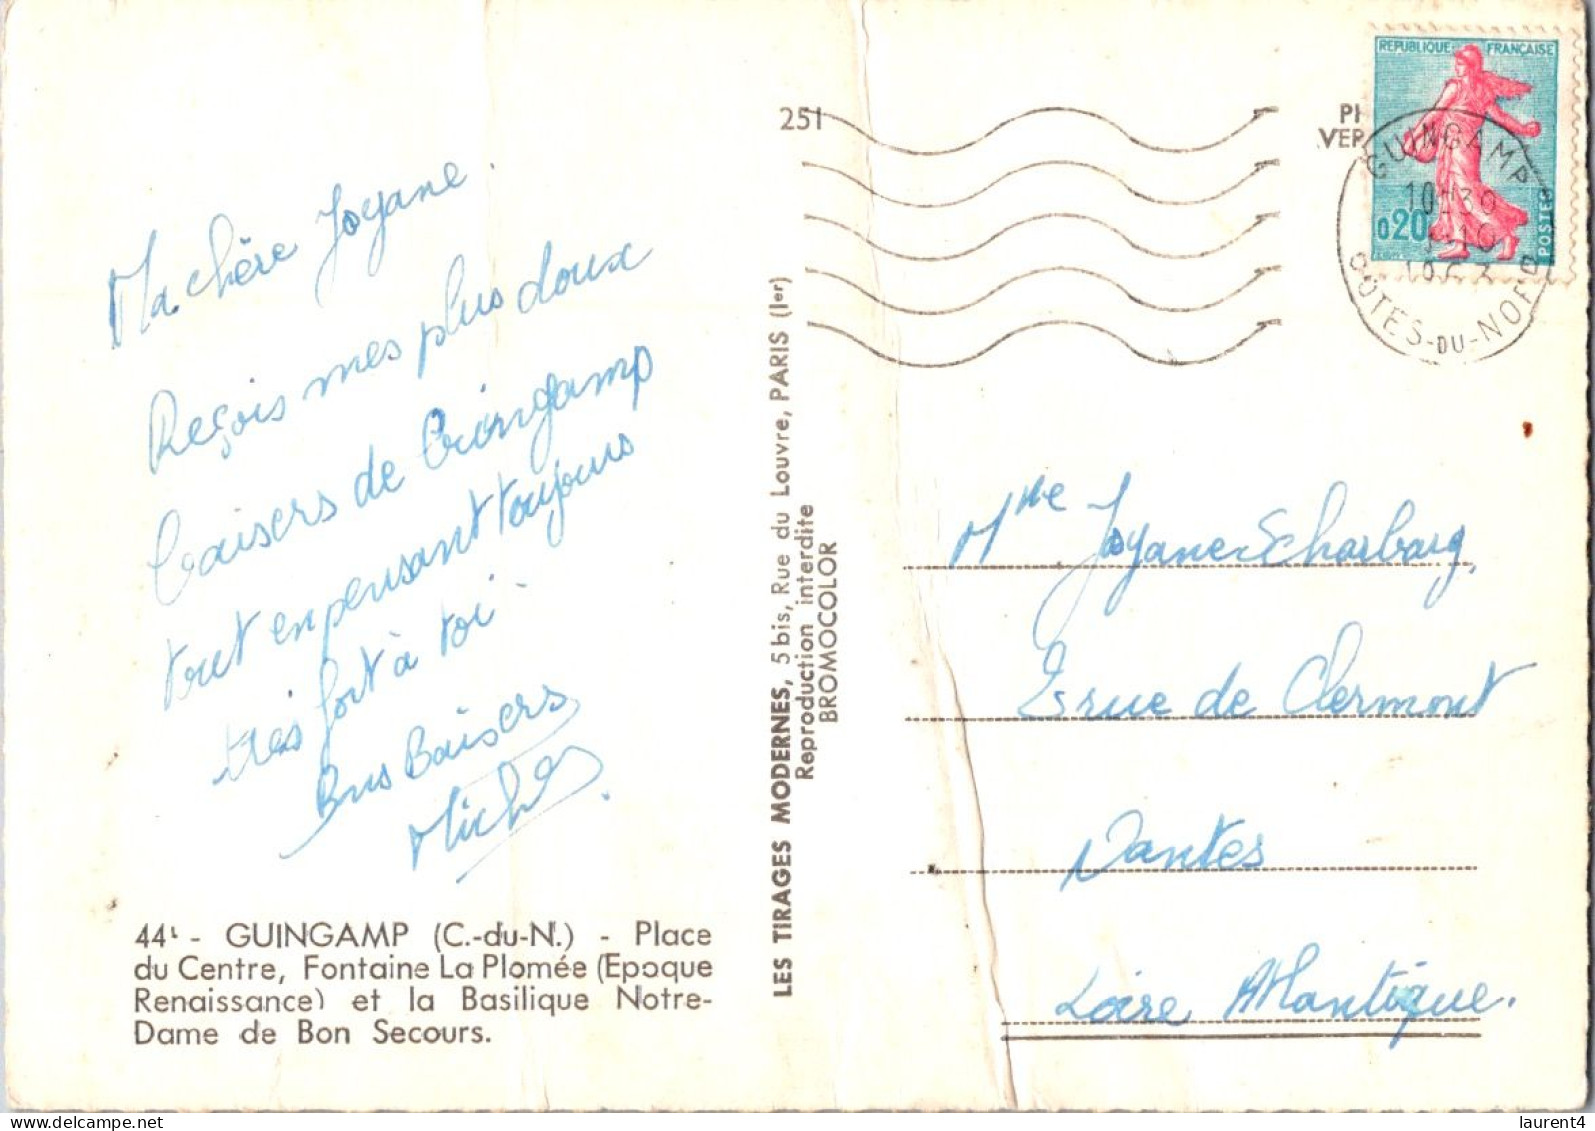 Ma chère Joyane.
Reçois mes plus doux
baisers de Guingamp
tout en pensant toujours
très fort à toi -
Bons Baisers
44 - GUINGAMP (C.-du-N.) - Place
du Centre, Fontaine La Plomée (Epoque
Renaissance) et la Basilique Notre-
Dame de Bon Secours.
251
LES TIRAGES MODERNES, 5 bis, Rue du Louvre, PARIS (Ier)
Reproduction interdite
BROMOCOLOR
REPUBLIQUE FRANÇAISE
0,20
POSTES
GUINGAMP
10H30
1963
CÔTES-DU-NORD
Mlle Joyane
rue de Clermont
Nantes
Loire Atlantique.
laurent4